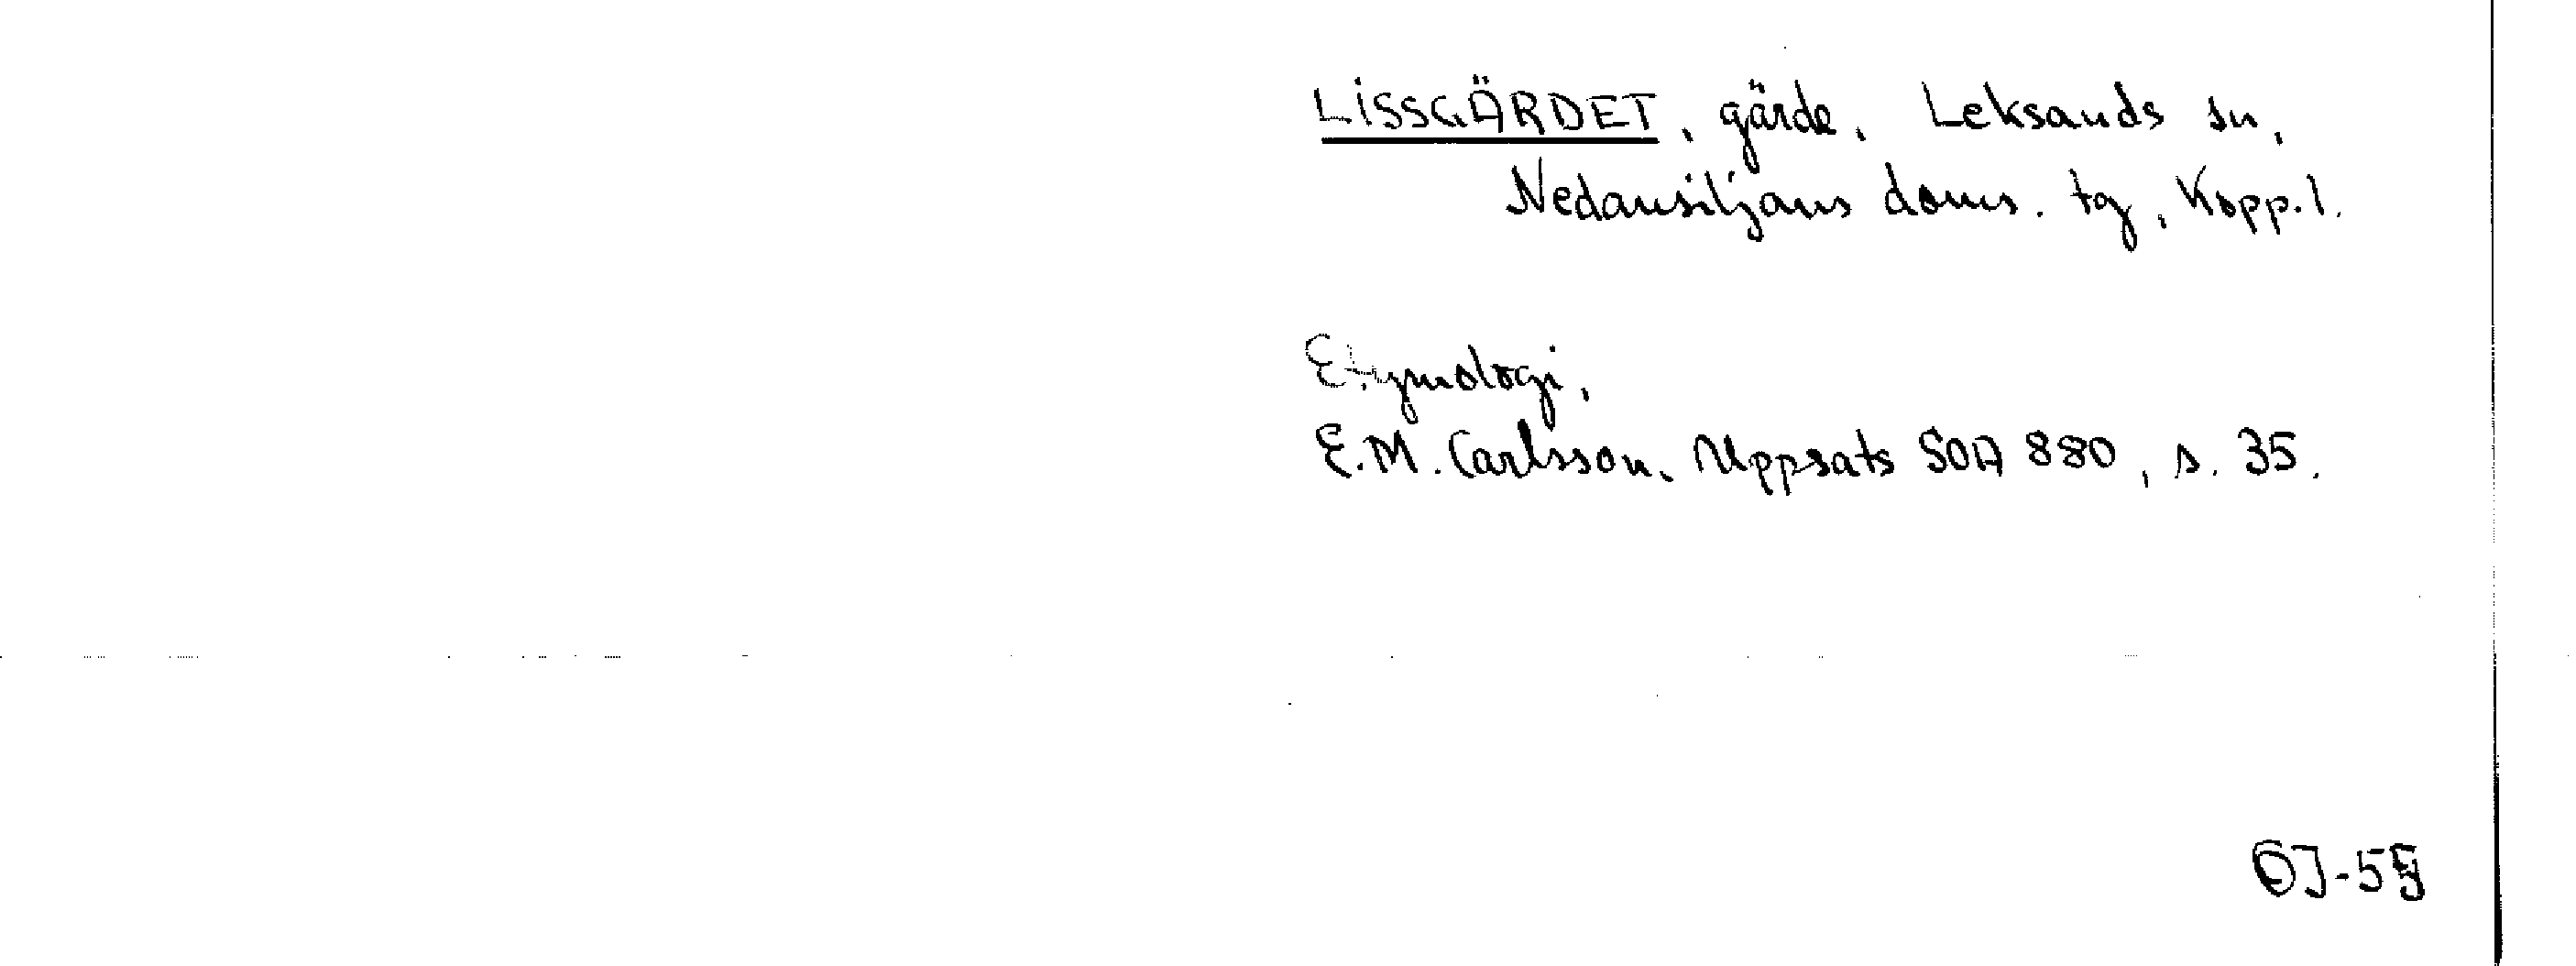 LISSGÄRDET, gärde, Leksands sn,
Nedansiljans doms. tg, Kopp.l.
Etymologi,
E.M. Carlsson, Uppsats SOA 880, s. 35.